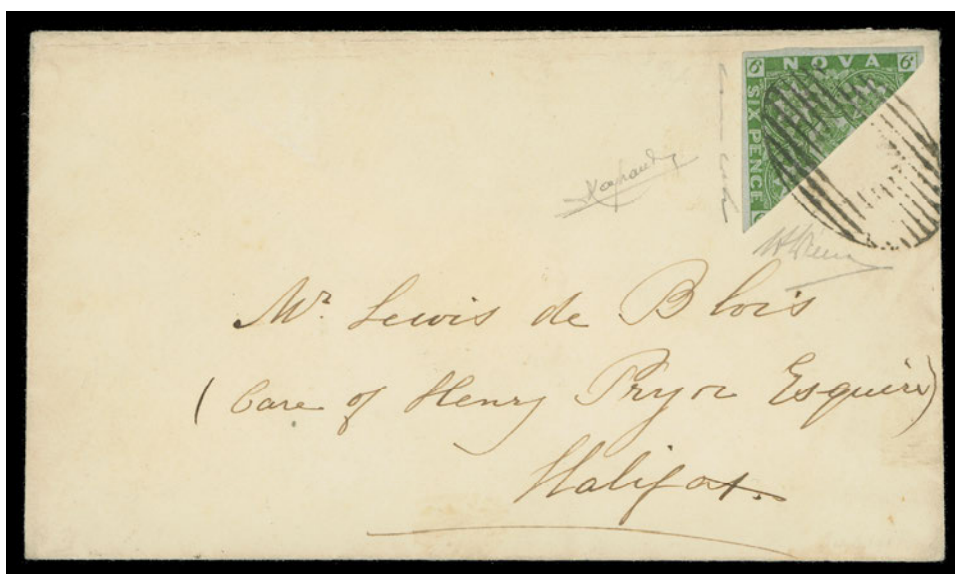 6 NOVA 6
SIX PENCE
Mr. Lewis de Blois
(Care of Henry Pryor Esquire)
Halifax.